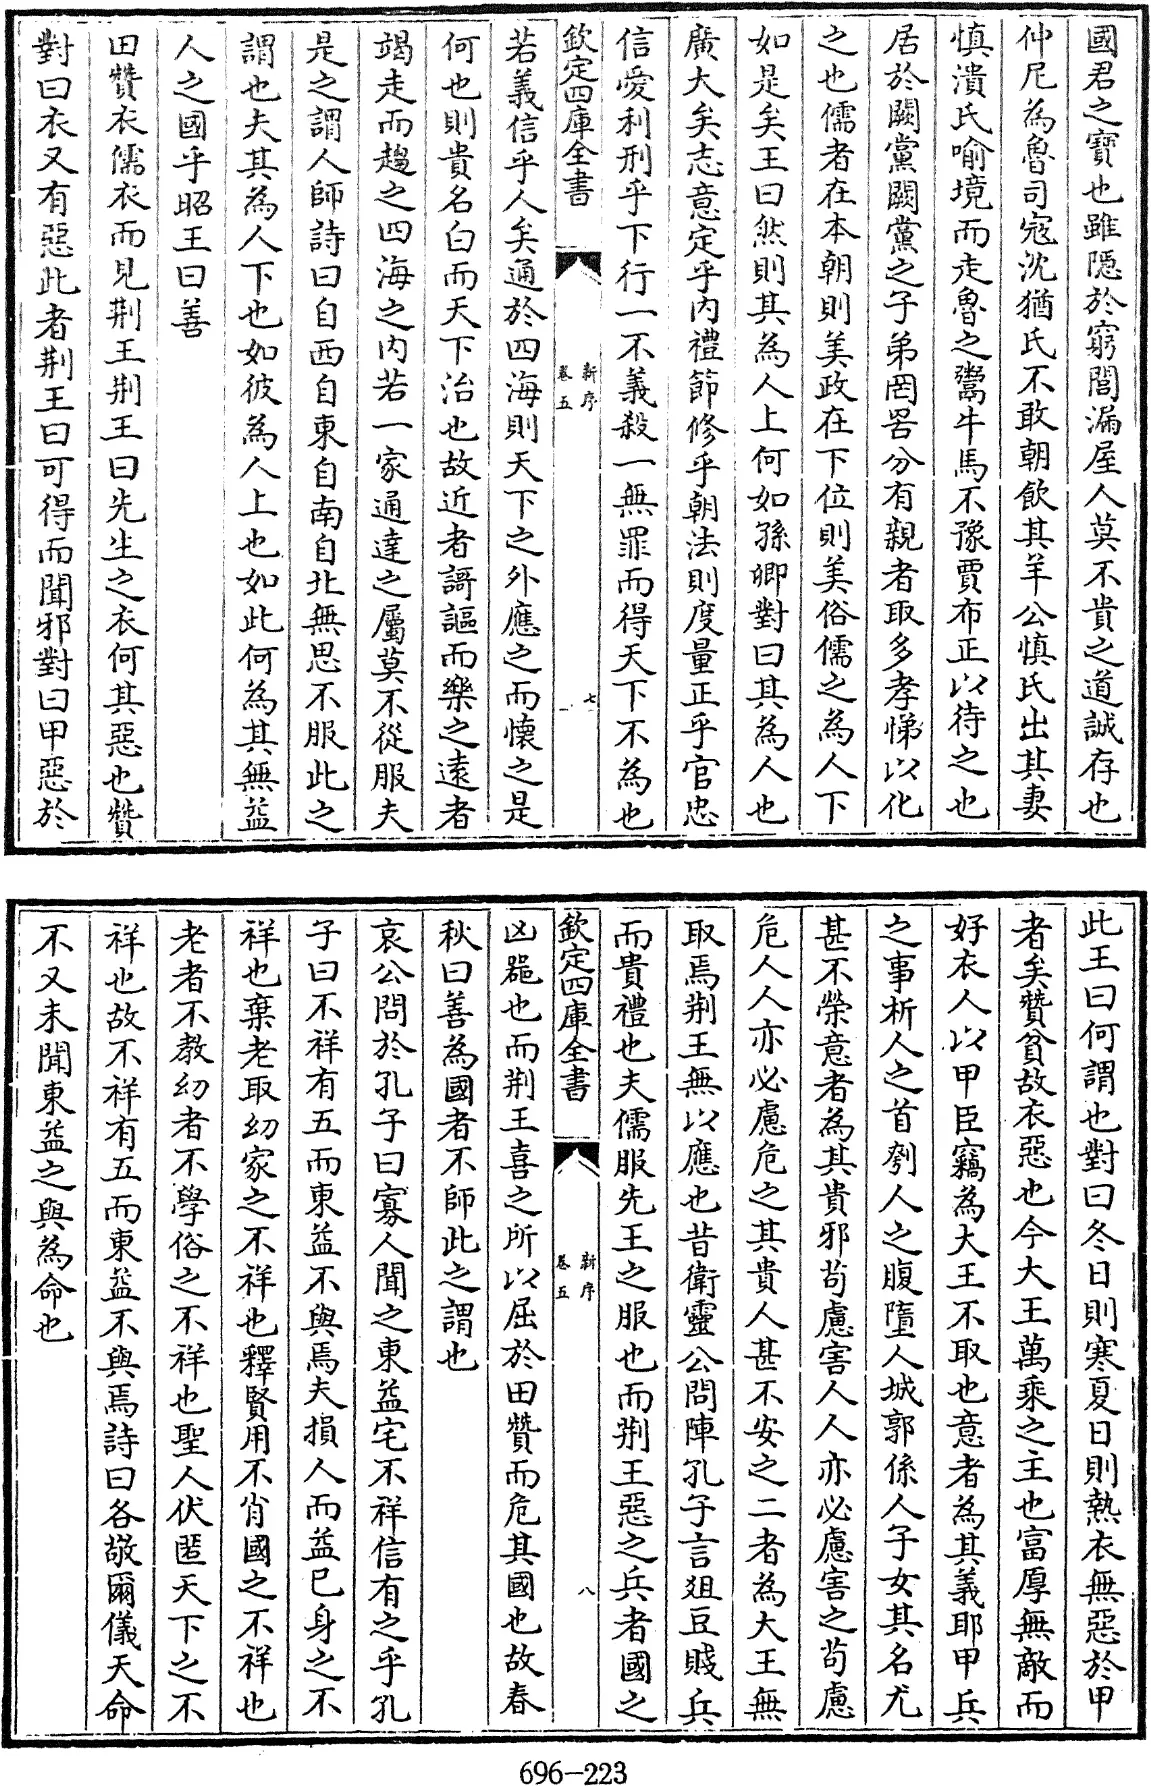 國君之寶也雖隱於窮閻漏屋人莫不貴之道誠存也
仲尼為魯司寇沈猶氏不敢朝飲其羊公慎氏出其妻
慎潰氏喻境而走魯之鬻牛馬不豫賈布正以待之也
居於闕黨闕黨之子弟罔罟分有親者取多孝悌以化
之也儒者在本朝則美政在下位則美俗儒之為人下
如是矣王曰然則其為人上何如孫卿對曰其為人也
廣大矣志意定乎内禮節修乎朝法則度量正乎官忠
信愛利刑乎下行一不義殺一無罪而得天下不為也
欽定四庫全書
新序
卷五
七
若義信乎人矣通於四海則天下之外應之而懐之是
何也則貴名白而天下治也故近者謌謳而樂之逺者
竭走而趨之四海之内若一家通達之屬莫不從服夫
是之謂人師詩曰自西自東自南自北無思不服此之
謂也夫其為人下也如彼為人上也如此何為其無益
人之國乎昭王曰善
田贊衣儒衣而見荆王荆王曰先生之衣何其惡也贊
對曰衣又有惡此者荆王曰可得而聞邪對曰甲惡於
此王曰何謂也對曰冬日則寒夏日則熱衣無惡於甲
者矣贊貧故衣惡也今大王萬乘之主也富厚無敵而
好衣人以甲臣竊為大王不取也意者為其義耶甲兵
之事析人之首刳人之腹墮人城郭係人子女其名尤
甚不榮意者為其貴邪茍慮害人人亦必慮害之茍慮
危人人亦必慮危之其貴人甚不安之二者為大王無
取焉荆王無以應也昔衛靈公問陣孔子言俎豆賤兵
而貴禮也夫儒服先王之服也而荆王惡之兵者國之
欽定四庫全書
新序
卷五
八
凶噐也而荆王喜之所以屈於田贊而危其國也故春
秋曰善為國者不師此之謂也
哀公問於孔子曰寡人聞之東益宅不祥信有之乎孔
子曰不祥有五而東益不與焉夫損人而益己身之不
祥也棄老取幼家之不祥也釋賢用不肖國之不祥也
老者不教幼者不學俗之不祥也聖人伏匿天下之不
祥也故不祥有五而東益不與焉詩曰各敬爾儀天命
不又未聞東益之與為命也
696-223